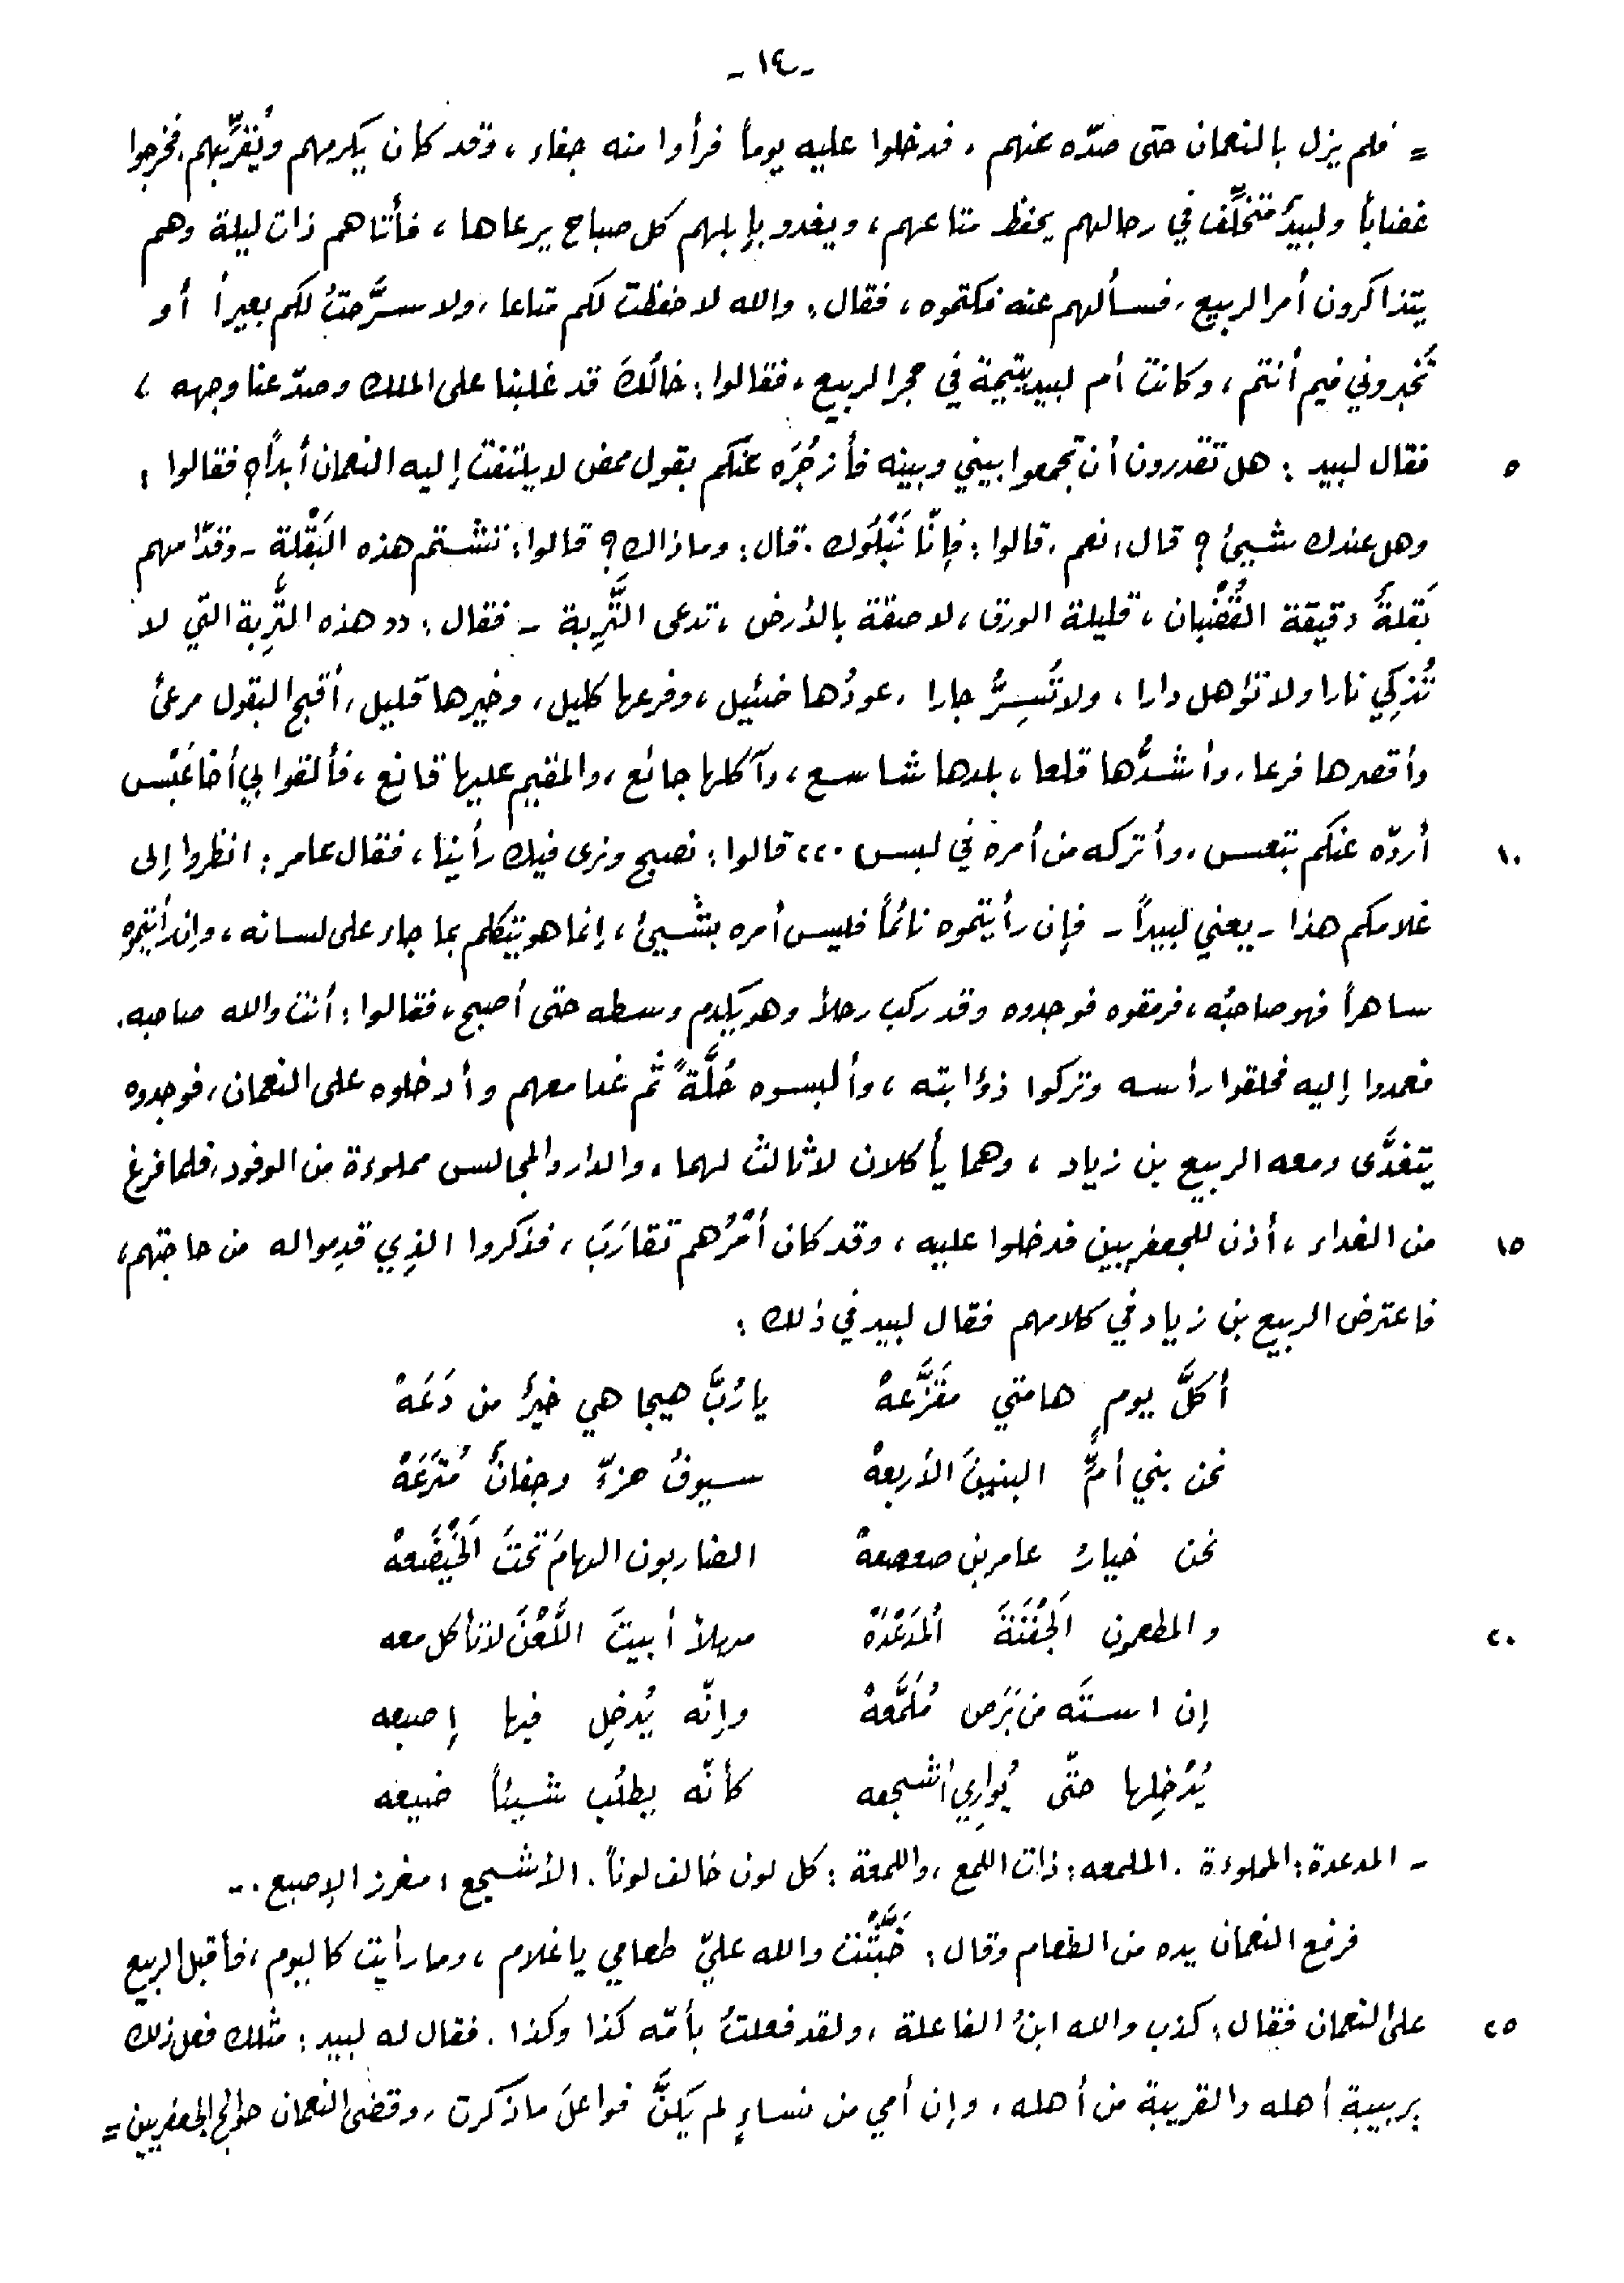 -١٤-
= فلم يزل بالنعمان حتى صدّه عنهم ، فدخلوا عليه يوماً فرأوا منه جفاء ، وقد كان يكرمهم ويُقرِّبهم ، فخرجوا
غضاباً ولبيدٌ متخلِّف في رحالهم يحفظ متاعهم ، ويغدو بإبلهم كل صباح يرعاها ، فأتاهم ذات ليلة وهم
يتذاكرون أمر الربيع ، فسألهم عنه فكتموه ، فقال : والله لا حفظت لكم متاعا ، ولا سرَّحتُ لكم بعيراً أو
تُخبروني فيم أنتم ، وكانت أم لبيد يتيمة في حجر الربيع ، فقالوا : خالُك قد غلبنا على الملك وصدّ عنا وجهه ،
٥ فقال لبيد : هل تقدرون أن تجمعوا بيني وبينه فأزجُرَه عنكم بقول ممض لا يلتفت إليه النعمان أبداً ؟ فقالوا :
وهل عندك شيئ ؟ قال : نعم . قالوا : فإنّا نَبْلُوك . قال : وما ذاك ؟ قالوا : تشتم هذه البَقْلة - وقدّامهم
بَقلةٌ دقيقة القُضْبان ، قليلة الورق ، لاصقة بالأرض ، تدعى التَّرِبة - فقال : « هذه التَّرِبة التي لا
تُذكِي نارا ولا تؤهل دارا ، ولا تُسِرُّ جارا ، عودُها ضئيل ، وفرعها كليل ، وخيرها قليل ، أقبح البقول مرعىً
وأقصرها فرعا ، وأشدُّها قلعا ، بلدها شاسع ، وآكلها جائع ، والمقيم عليها قانع ، فألقوا بي أخا عَبْس
١٠ أردّه عنكم بتعس ، وأتركه من أمره في لبس . » قالوا : نصبح ونرى فيك رأينا ، فقال عامر : انظروا إلى
غلامكم هذا - يعني لبيداً - فإن رأيتموه نائماً فليس أمره بشيئ ، إنما هو يتكلم بما جاء على لسانه ، وإن رأيتموه
ساهراً فهو صاحبُه ، فرمقوه فوجدوه وقد ركب رحلاً وهو يكدم وسطه حتى أصبح ، فقالوا : أنت والله صاحبه .
فعمدوا إليه فحلقوا رأسه وتركوا ذؤابته ، وألبسوه حُلَّةً ثم غدا معهم وأدخلوه على النعمان ، فوجدوه
يتغدَّى ومعه الربيع بن زياد ، وهما يأكلان لا ثالث لهما ، والدار والمجالس مملوءة من الوفود ، فلما فرغ
١٥ من الغداء ، أذن للجعفريين فدخلوا عليه ، وقد كان أمْرُهم تقارَبَ ، فذكروا الذي قدِموا له من حاجتهم ،
فاعترض الربيع بن زياد في كلامهم فقال لبيد في ذلك :
أكلَّ يومٍ هامتي مقَزَّعهْ يا رُبَّ هيجا هي خيرٌ من دَعَهْ
نحن بني أمِّ البنينَ الأربعهْ سيوفُ حزٍّ وجفانٌ مُترَعَهْ
نحن خيارُ عامر بن صعصعهْ الضاربون الهامَ تحتَ الخَيْضَعهْ
٢٠ والمطعمون الجَفْنَةَ المُدَعْدَهْ مهلاً أبيتَ اللَّعْنَ لا تأكل معه
إن استَه من بَرَص مُلَمَّعهْ وإنّه يُدخِل فيها إصبعه
يُدْخِلها حتّى يُوارِي أشجعه كأنّه يطلُب شيئاً ضيعه
- المدعدة : المملوءة . الملمعه : ذات اللمع ، واللمعة : كل لون خالف لوناً . الأشجع : مغرز الإصبع . -
فرفع النعمان يده من الطعام وقال : خَبَّثْتَ والله عليّ طعامي يا غلام ، وما رأيت كاليوم ، فأقبل الربيع
٢٥ على النعمان فقال : كذب والله ابنُ الفاعلة ، ولقد فعلتُ بأمّه كذا وكذا . فقال له لبيد : مثلك فعل ذلك
بربيبةِ أهله والقريبة من أهله ، وإن أمي من نساءٍ لم يكنَّ فواعلَ ما ذكرت ، وقضى النعمان حوائج الجعفريين =